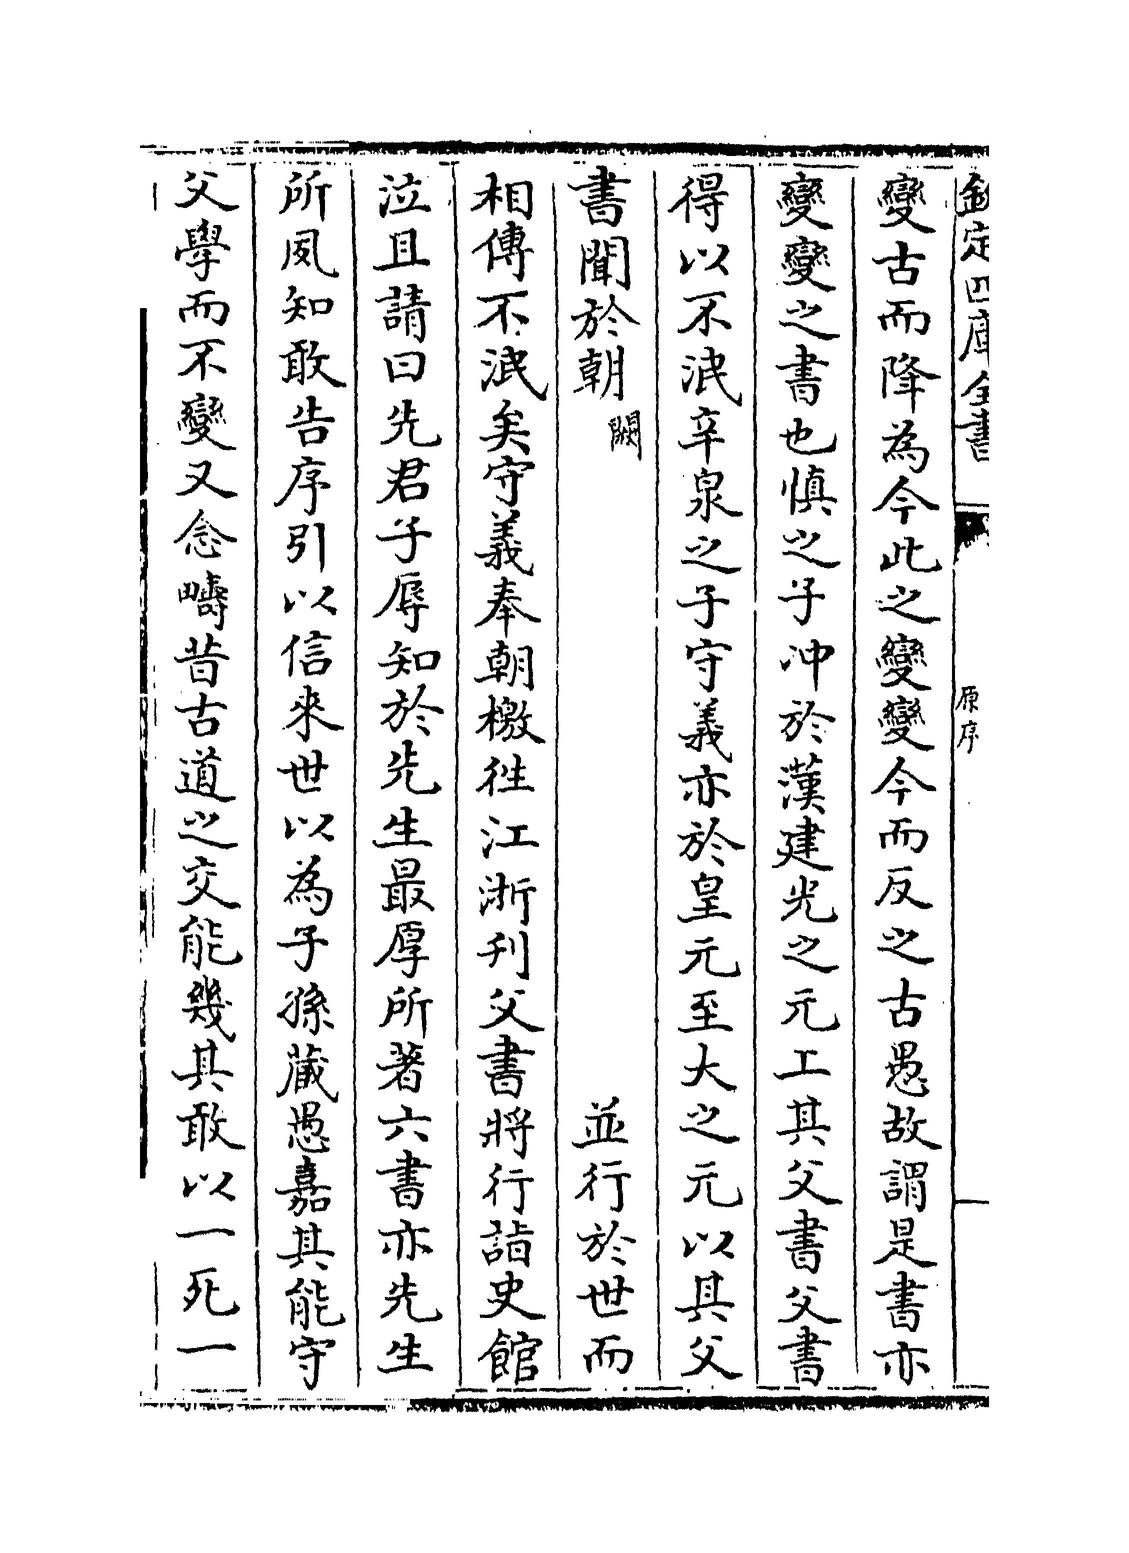 欽定四庫全書
原序
變古而降為今此之變變今而反之古愚故謂是書亦
變變之書也慎之子冲於漢建光之元工其父書父書
得以不泯辛泉之子守義亦於皇元至大之元以其父
書聞於朝闕並行於世而
相傳不泯矣守義奉朝檄徃江浙刋父書將行詣史館
泣且請曰先君子辱知於先生最厚所著六書亦先生
所夙知敢告序引以信來世以為子孫藏愚嘉其能守
父學而不變又念疇昔古道之交能幾其敢以一死一